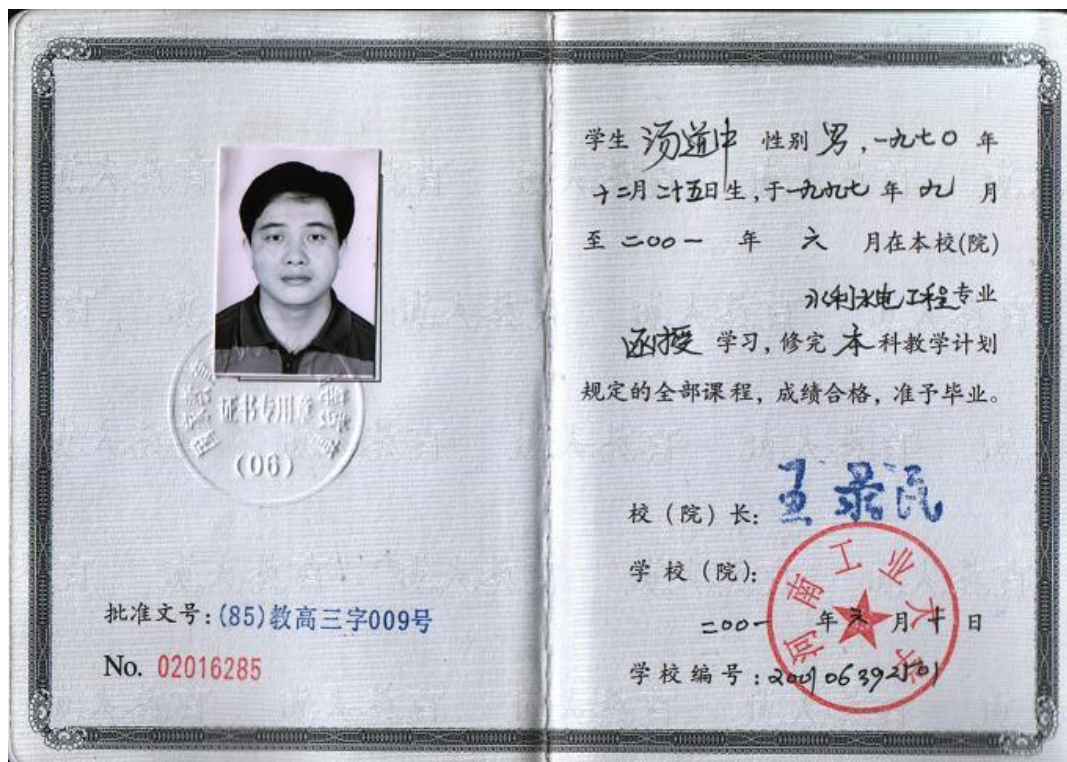 证书专用章
(06)
批准文号:(85)教高三字009号
No. 02016285
学生 汤道中 性别 男,一九七0 年
十二月二十五日生,于一九九七 年 九 月
至 二00一 年 六 月在本校(院)
水利水电工程专业
函授 学习,修完 本 科教学计划
规定的全部课程,成绩合格,准予毕业。
校(院)长: 王录民
学校(院):
河南工业大学
二00一 年 六 月 十 日
学校编号:200106392501